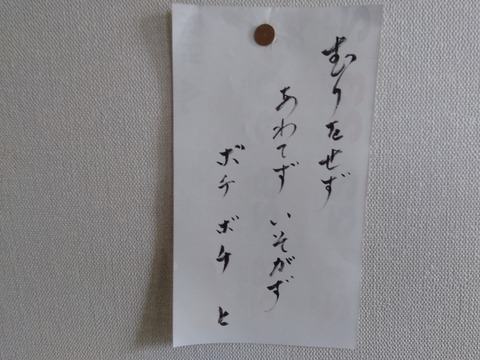 むりをせず
あわてず いそがず
ボチボチ と